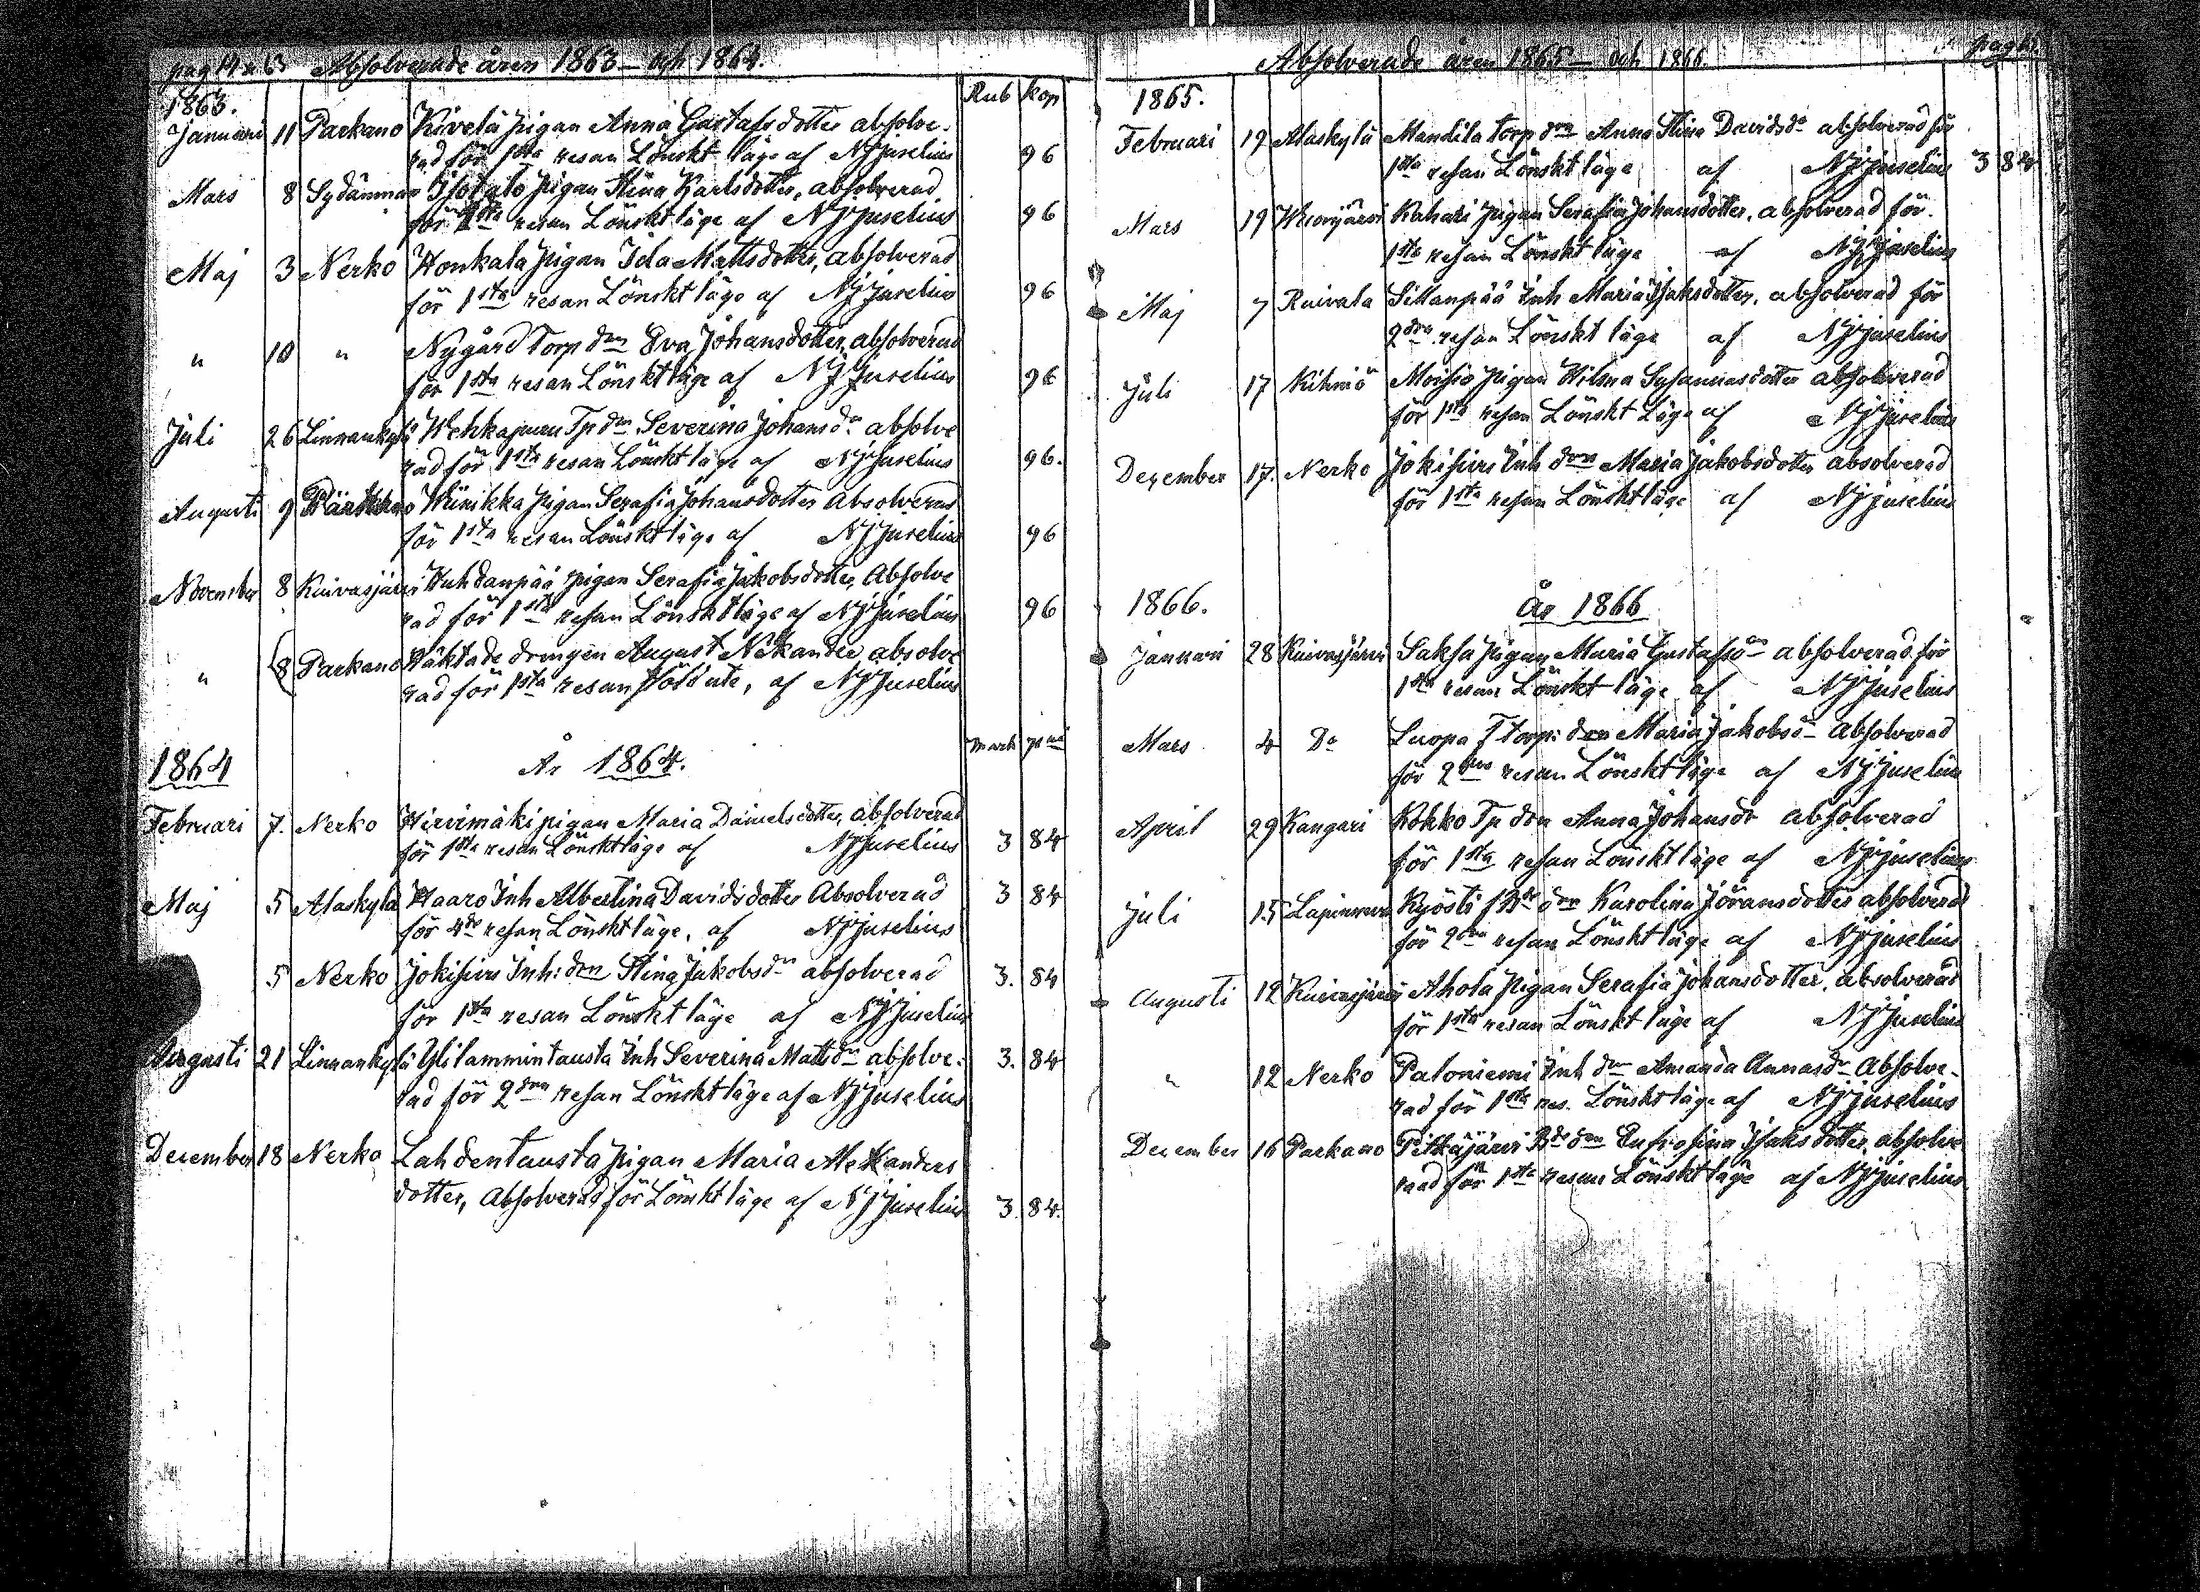 Absolverade åren 1863 – och 1864.
Rub kop
1863.
Januari 11 Parkano Kivelä pigan Anna Gustafsdotter absolve-
rad för 1sta resan Lönskt läge af N J Juselius 96
Mars 8 Sydänmaa Isotalo pigan Stina Karlsdotter, absolverad
för 1sta resan Lönskt läge af N J Juselius 96
Maj 3 Nerko Honkala pigan Ida Mattsdotter, absolverad
för 1sta resan Lönskt läge af N J Juselius 96
" 10 " Nygård Torp dren Eva Johansdotter, absolverad
för 1sta resan Lönskt läge af N J Juselius 96
Juli 26 Linnankylä Wehkapuru Tp drn Severina Johansdr absolve
rad för 1sta resan Lönskt läge af N J Juselius 96.
Augusti 9 Wiinikka pigan Serafia Johansdotter Absolverad
för 1sta resan Lönskt läge af N J Juselius 96
November 8 Kuivasjärvi Huhdanpää pigan Serafia Jakobsdotter, Absolve
rad för 1sta resan Lönskt läge af N J Juselius 96
" 8 Parkano Häktade drengen August Nikander absolve
rad för 1sta resan stöld ute, af N J Juselius
Mark pni
1864 År 1864.
Februari 7. Nerko Hirvimäki pigan Maria Danielsdotter, absolverad
för 1sta resan Lönskt läge af N J Juselius 3 84
Maj 5 Alaskylä Haaro Inh Albertina Davidsdotter Absolverad 3 84
för 4de resan Lönskt läge, af N J Juselius
5 Nerko Jokihirs Inh: drn Stina Jakobsdr absolverad 3. 84
för 1sta resan Lönskt läge af N J Juselius
Augusti 21 Linnankylä Ylilammintausta Inh Severina Mattsdr absolve- 3. 84
rad för 2dra resan Lönskt läge af N J Juselius
December 18 Nerko Lahdentausta pigan Maria Alexanders
dotter, Absolverad för Lönskt läge af N J Juselius 3. 84.
Absolverade åren 1865 – och 1866.
1865.
Februari 19 Alaskylä Mandila Torp drn Anna Stina Davidsdr absolverad för
1sta resan Lönskt läge af N J Juselius 3 84
Mars 19 Kahari pigan Serafia Johansdotter, absolverad för
1sta resan Lönskt läge af N J Juselius
Maj 7 Sillanpää Inh Maria Isaksdotter, absolverad för
2dra resan Lönskt läge af N J Juselius
Juli 17 Kihniö Moisio pigan Wilma Susannasdotter absolverad
för 1sta resan Lönskt Läge af N J Juselius
Dezember 17. Nerko Jokihirs Inh drn Maria Jakobsdotter absolverad
för 1sta resan Lönskt läge af N J Juselius
1866. År 1866
Januari 28 Kuivasjärvi Saksa pigan Maria Gustafsdr absolverad för
1sta resan Lönskt läge af N J Juselius
Mars 4 Do Luopa T torp: drn Maria Jakobsd Absolverad
för 2dra resan Lönskt läge af N J Juselius
April 29 Kangari Kokko Tp drn Anna Johansdr absolverad
för 1sta resan Lönskt läge af N J Juselius
Juli 15 Lapinneva Kyösti f Bde drn Karolina Jöransdotter absolverad
för 2dra resan Lönskt läge af N J Juselius
Augusti 12 Kuivasjärvi Ahola pigan Serafia Johansdotter, absolverad
för 1sta resan Lönskt läge af N J Juselius
" 12 Nerko Paloniemi Inh drn Amanda Annasdr Absolve-
rad för 1sta res. Lönskt läge af N J Juselius
December 16 Parkano Pitkäjärvi Bde drn Eufrosina Isaksdotter, absolve
raad för 1sta resan Lönskt läge af N J Juselius